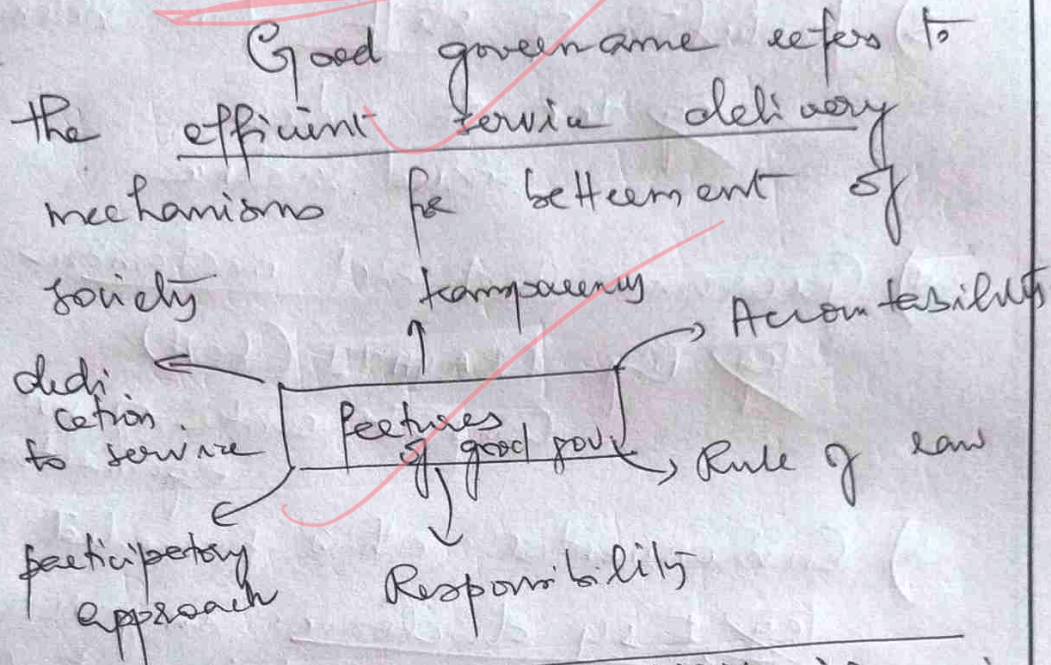 Good governance refers to
the efficient service delivery
mechanisms for betterment of
society
transparency
Accountability
dedi
cation
to service
features
of good gov
Rule of law
participatory
approach
Responsibility